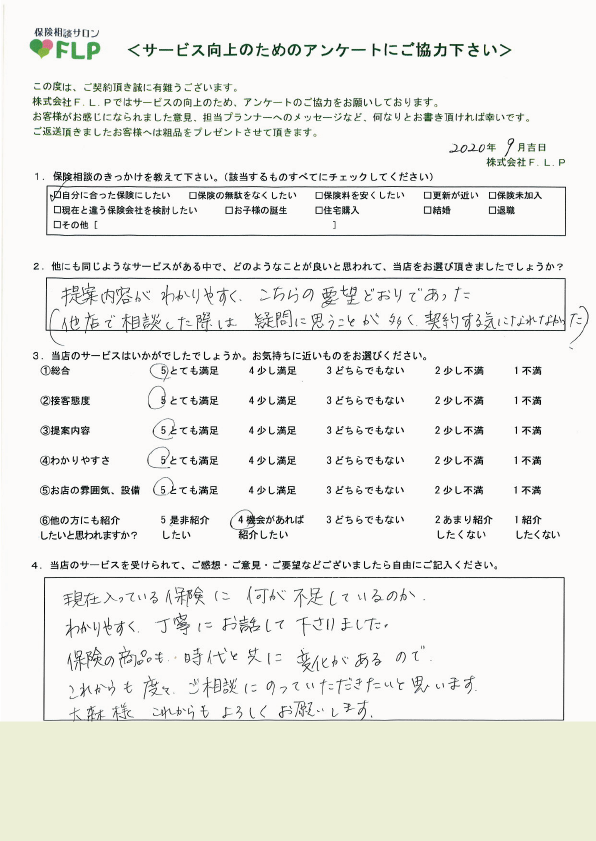 保険相談サロン
FLP
＜サービス向上のためのアンケートにご協力下さい＞
この度は、ご契約頂き誠に有難うございます。
株式会社Ｆ.Ｌ.Ｐではサービスの向上のため、アンケートのご協力をお願いしております。
お客様がお感じになられました意見、担当プランナーへのメッセージなど、何なりとお書き頂ければ幸いです。
ご返送頂きましたお客様へは粗品をプレゼントさせて頂きます。
2020年 9月吉日
株式会社Ｆ.Ｌ.Ｐ
１．保険相談のきっかけを教えて下さい。（該当するものすべてにチェックしてください）
☑自分に合った保険にしたい □保険の無駄をなくしたい □保険料を安くしたい □更新が近い □保険未加入
□現在と違う保険会社を検討したい □お子様の誕生 □住宅購入 □結婚 □退職
□その他［ ］
２．他にも同じようなサービスがある中で、どのようなことが良いと思われて、当店をお選び頂きましたでしょうか？
提案内容が わかりやすく、こちらの要望どおりであった
（他店で相談した際は 疑問に思うことが多く、契約する気になれなかった）
３．当店のサービスはいかがでしたでしょうか。お気持ちに近いものをお選びください。
①総合 5とても満足 4少し満足 3どちらでもない 2少し不満 1不満
②接客態度 5とても満足 4少し満足 3どちらでもない 2少し不満 1不満
③提案内容 5とても満足 4少し満足 3どちらでもない 2少し不満 1不満
④わかりやすさ 5とても満足 4少し満足 3どちらでもない 2少し不満 1不満
⑤お店の雰囲気、設備 5とても満足 4少し満足 3どちらでもない 2少し不満 1不満
⑥他の方にも紹介 5是非紹介 4機会があれば 3どちらでもない 2あまり紹介 1紹介
したいと思われますか？ したい 紹介したい したくない したくない
４．当店のサービスを受けられて、ご感想・ご意見・ご要望などございましたら自由にご記入ください。
現在入っている保険に 何が不足しているのか、
わかりやすく、丁寧にお話して下さりました。
保険の商品も、時代と共に 変化があるので、
これからも度々、ご相談にのっていただきたいと思います。
大森様 これからもよろしくお願いします。